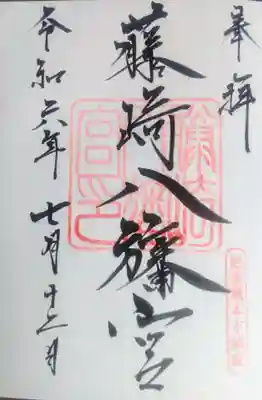 奉拝
藤崎八旛宮
令和六年七月十三日